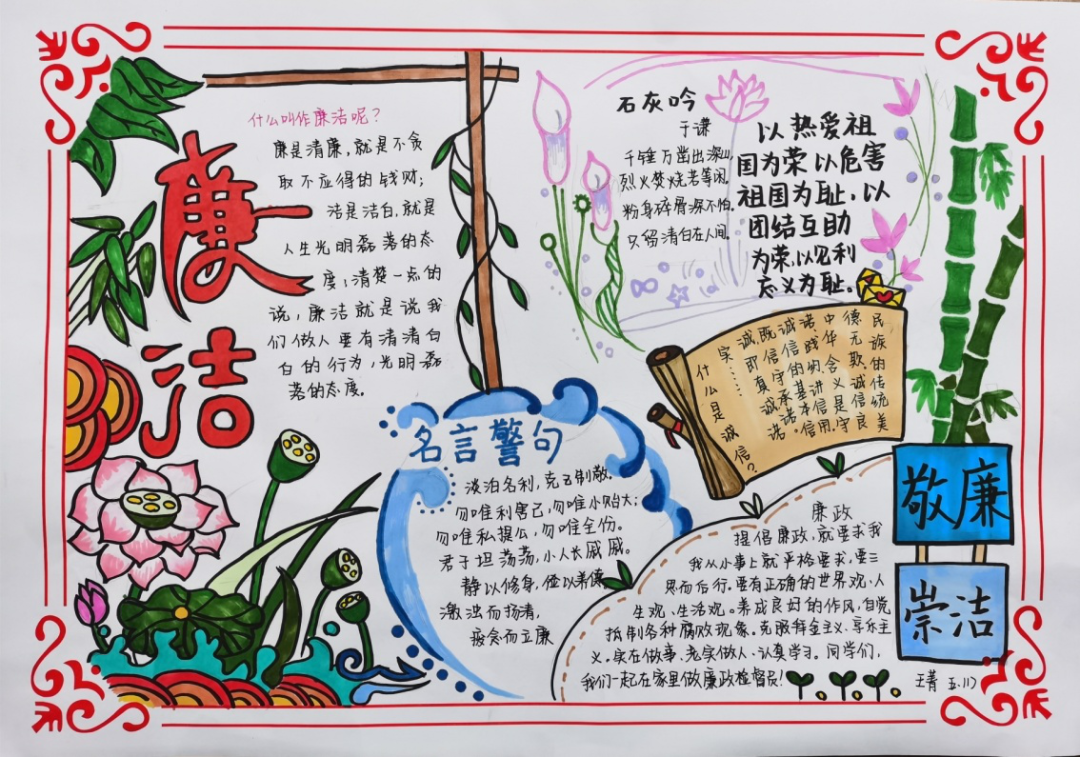 廉洁
什么叫作廉洁呢?
廉是清廉,就是不贪
取不应得的钱财;
洁是洁白,就是
人生光明磊落的态
度;清楚一点的
说,廉洁就是说我
们做人要有清清白
白的行为,光明磊
落的态度。
石灰吟
于谦
千锤万凿出深山,
烈火焚烧若等闲。
粉身碎骨浑不怕,
只留清白在人间。
以热爱祖
国为荣以危害
祖国为耻,以
团结互助
为荣,以见利
忘义为耻。
什么是诚信?
民族的传统美
德无欺,诚信是守良
中华含义是信用
诺,践约,讲信
诚信的基本
既信守承诺。
诚即真诚
实……
名言警句
淡泊名利,克己制敬。
勿唯利害己,勿唯小贻大;
勿唯私损公,勿唯全份。
君子坦荡荡,小人长戚戚。
静以修身,俭以养德
激浊而扬清,
疲贪而立廉
廉政
提倡廉政,就要求我
我从小事上就严格要求,要三
思而后行。要有正确的世界观、人
生观、生活观。养成良好的作风,自觉
抵制各种腐败现象。克服拜金主义、享乐主
义。实在做事、老实做人、认真学习。同学们,
我们一起在家里做廉政检督员!
敬廉
崇洁
王菁 五.(1)